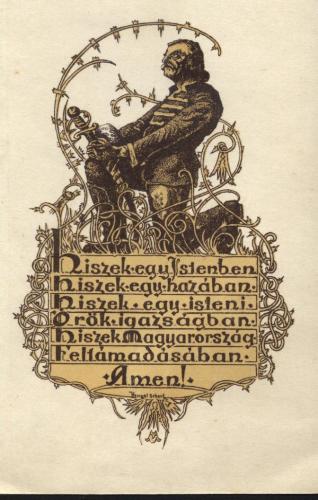 Hiszek·egy Istenben
Hiszek·egy·hazában·
Hiszek·egy·isteni·
Örök·igazságban·
Hiszek Magyarország
Feltámadásában·
·Ámen!·